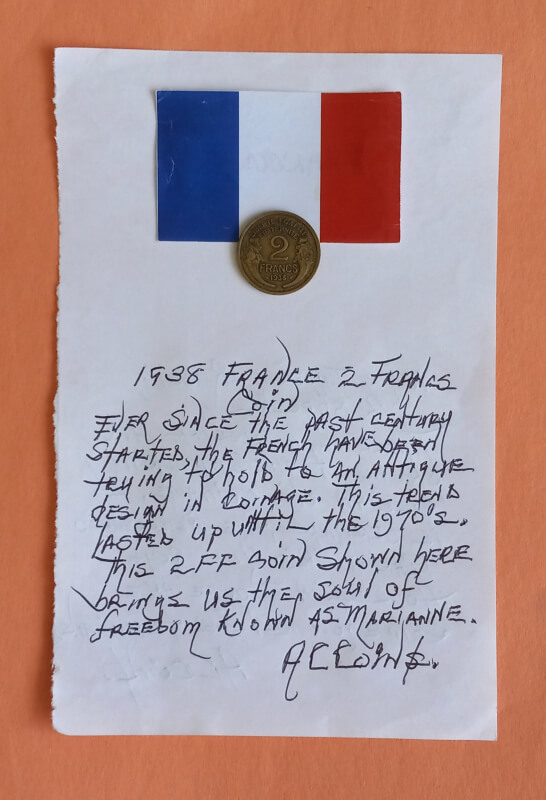 2
FRANCS
1938
1938 FRANCE 2 FRANCS
Coin
EVER SINCE the PAST CENTURY
STARTED, the FRENCH HAVE BEEN
trying to hold to AN ANTIQUE
DESIGN IN COINAGE. This TREND
LASTED UP UNTIL the 1970's.
This 2FF Coin Shown here
brings us the soul of
FREEDOM KNOWN AS MARIANNE.
ACCoin$.